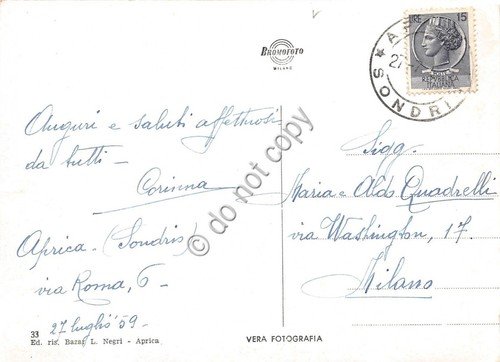 BROMOFOTO
MILANO
LIRE 15
SONDRI
Auguri e saluti affettuosi
da tutti -
Corinna
Aprica - (Sondrio)
via Roma, 6 -
27 luglio '59 -
33
Ed. ris. Bazar L. Negri - Aprica
VERA FOTOGRAFIA
Sigg.
Maria e Aldo Quadrelli
via Washington, 17.
Milano
© do not copy